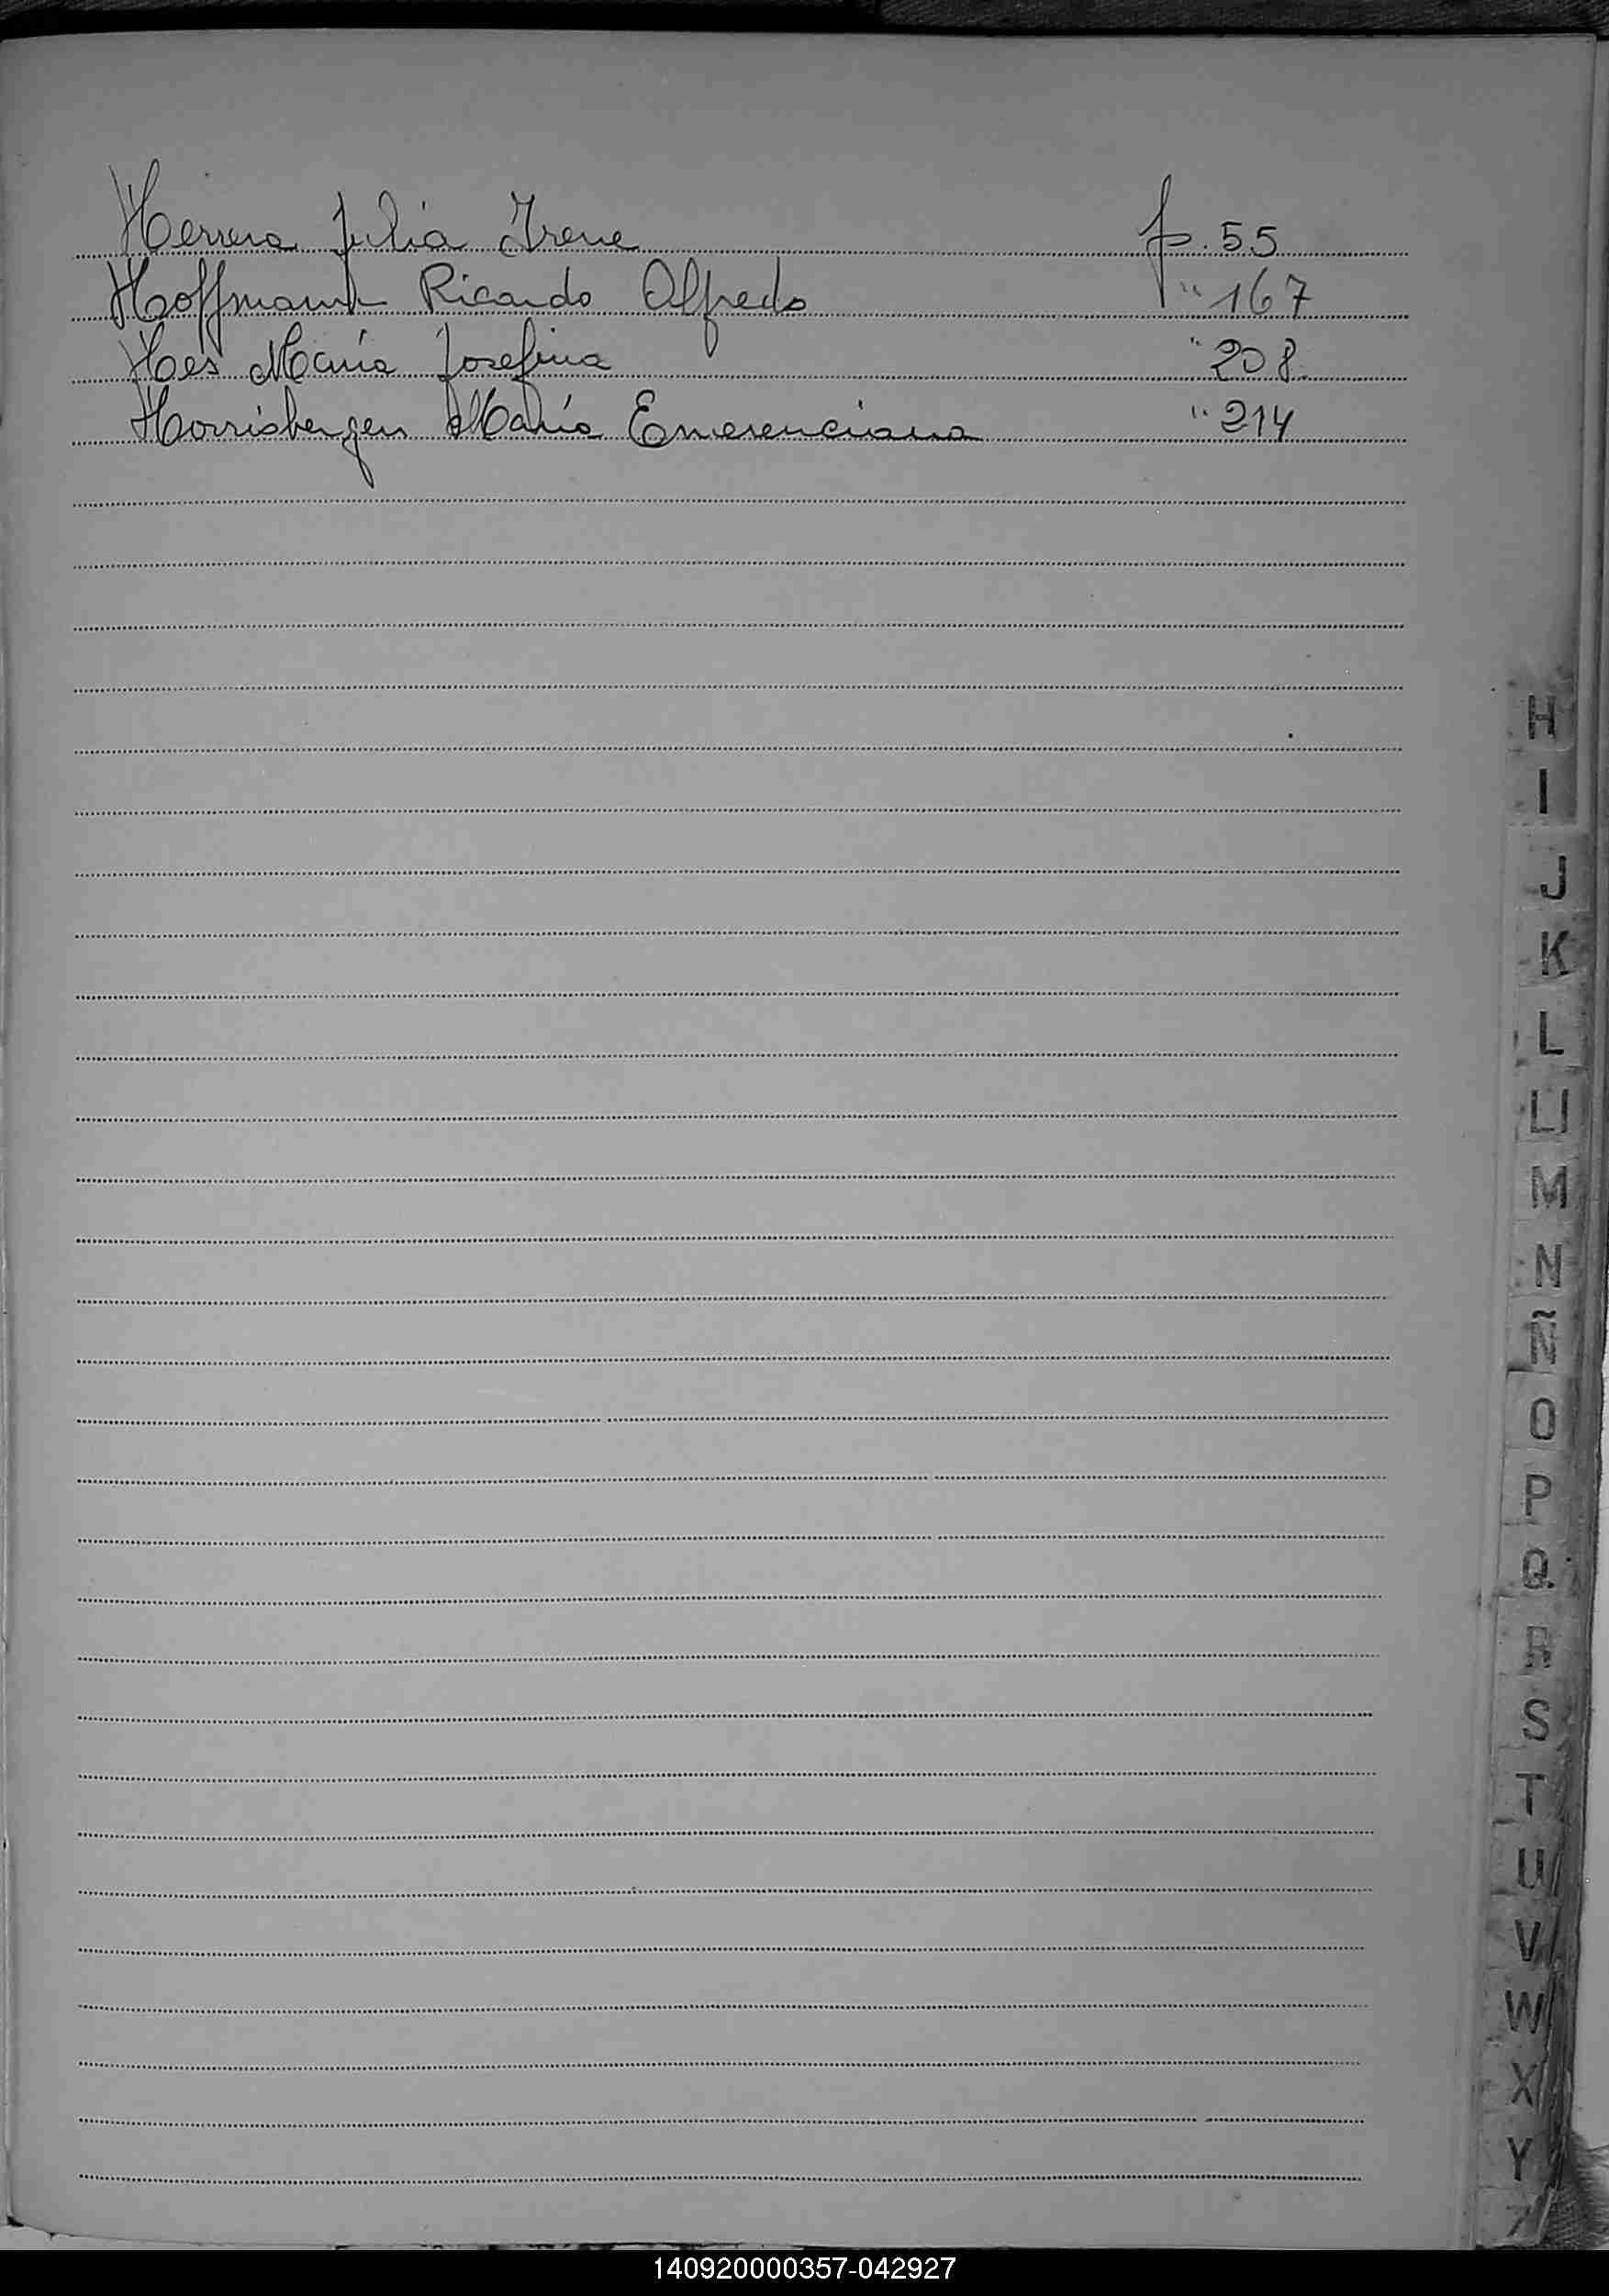 Herrera Julia Irene p. 55
Hoffmann Ricardo Alfredo " 167
Hes María Josefina " 208
Horrisberger María Emerenciana " 214
H
I
J
K
L
Ll
M
N
Ñ
O
P
Q
R
S
T
U
V
W
X
Y
Z
140920000357-042927